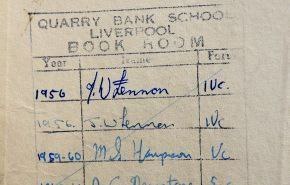 QUARRY BANK SCHOOL
LIVERPOOL
BOOK ROOM
Year Name Form
1956 J W Lennon IVc.
1956. J. W Lennon IVc
1959-60 M. S. Hampson Vc